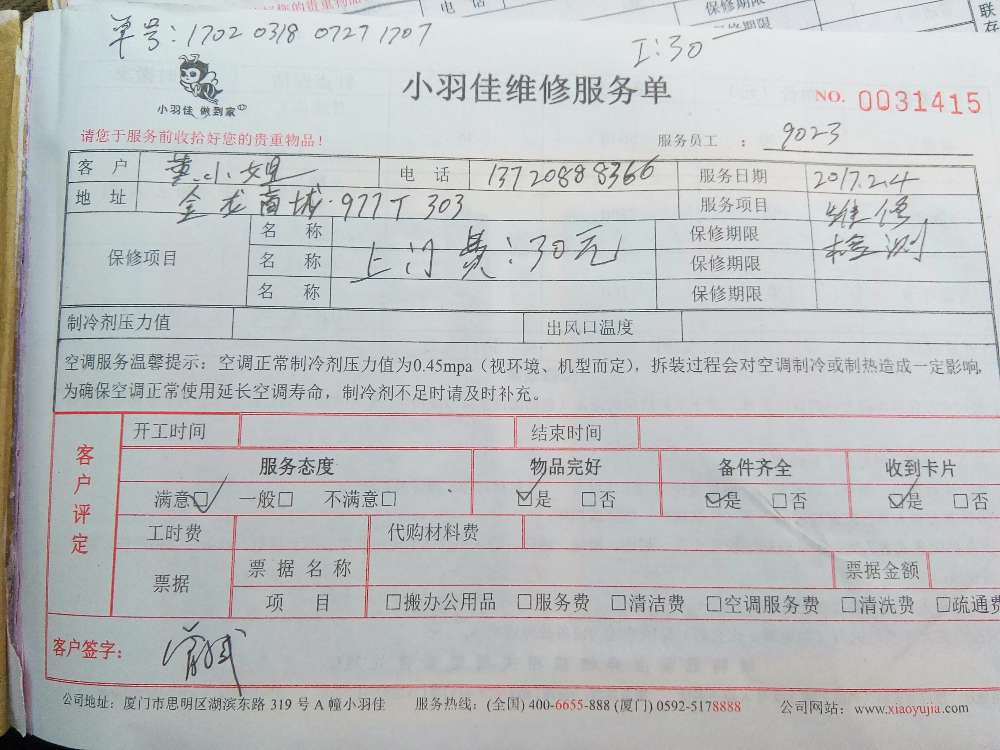 贵重物品
电
保修期限
联
存
单号:1702 0318 0727 1707
I:30
小羽佳 做到家
小羽佳维修服务单
NO. 0031415
请您于服务前收拾好您的贵重物品!
服务员工 : 9023
客 户 黄小姐 电 话 13720888366 服务日期 2017.2.4
地 址 金龙商城.977T 303 服务项目 维修
保修项目 名 称 保修期限 检测
名 称 上门费:30元 保修期限
名 称 保修期限
制冷剂压力值 出风口温度
空调服务温馨提示:空调正常制冷剂压力值为0.45mpa(视环境、机型而定),拆装过程会对空调制冷或制热造成一定影响,
为确保空调正常使用延长空调寿命,制冷剂不足时请及时补充。
客户评定
开工时间 结束时间
服务态度 物品完好 备件齐全 收到卡片
满意☑ 一般□ 不满意□ ☑是 □否 ☑是 □否 ☑是 □否
工时费 代购材料费
票据 票据名称 票据金额
项 目 □搬办公用品 □服务费 □清洁费 □空调服务费 □清洗费 □疏通费
客户签字:
公司地址:厦门市思明区湖滨东路 319 号 A 幢小羽佳 服务热线:(全国) 400-6655-888 (厦门) 0592-5178888 公司网站:www.xiaoyujia.com